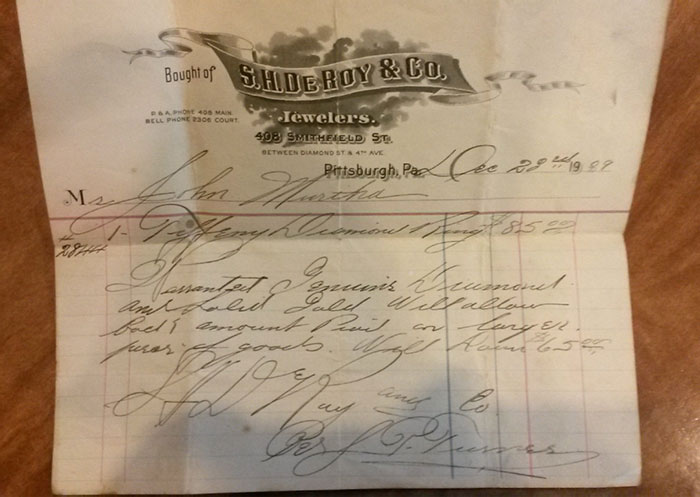 Bought of
S.H. DE ROY & CO.
Jewelers.
P. & A. PHONE 408 MAIN
BELL PHONE 2306 COURT
408 SMITHFIELD ST.
BETWEEN DIAMOND ST. & 4TH AVE.
Pittsburgh, Pa. Dec 22nd 19
M John Murtha
1 - Tiffeny Diamond Ring $85.00
Warranted Genuine Diamond
and Solid Gold Will allow
back amount Paid on larger
of goods. Will $65.00
S H De Roy and Co
Per P. Turner